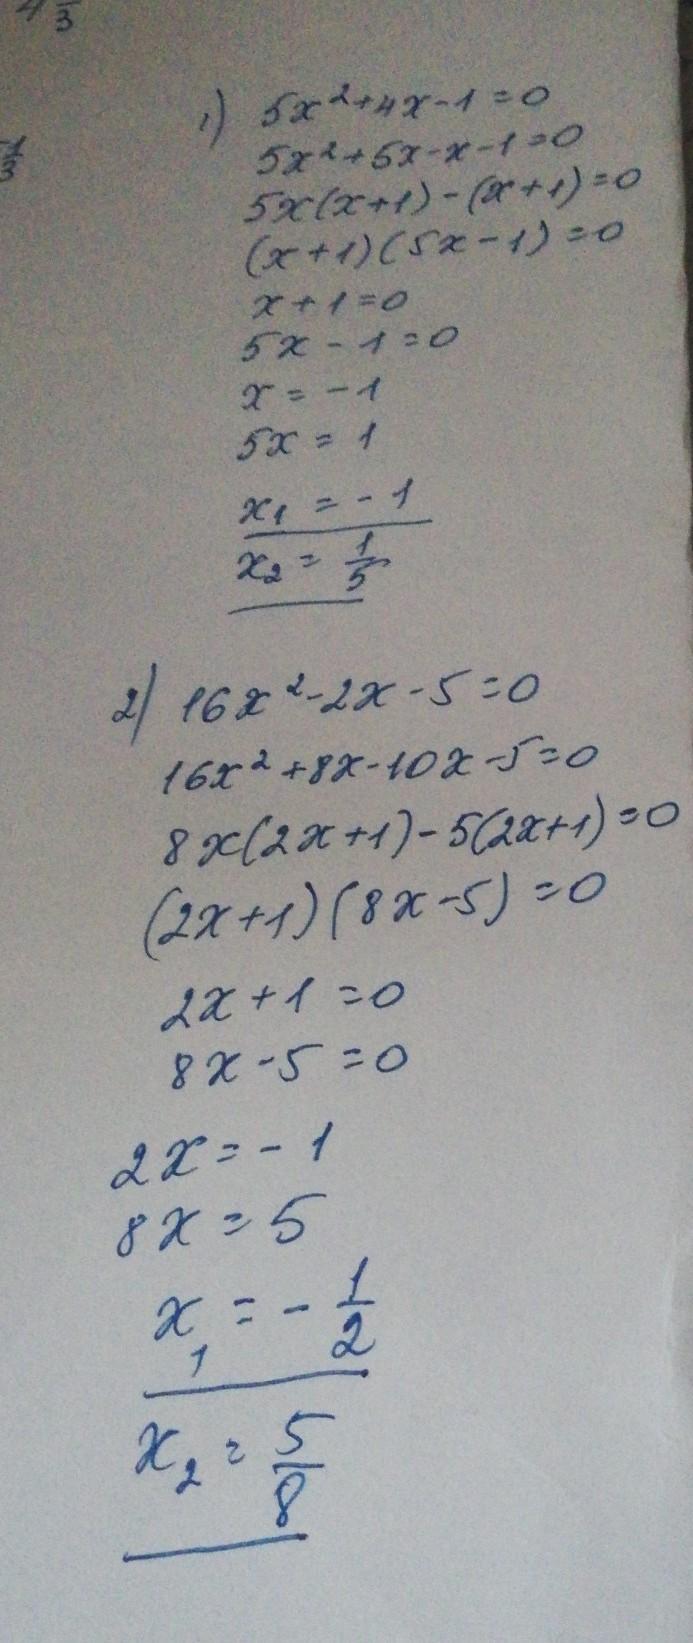 4 1/3
1/3
1) 5x²+4x-1=0
5x²+5x-x-1=0
5x(x+1)-(x+1)=0
(x+1)(5x-1)=0
x+1=0
5x-1=0
x=-1
5x=1
x₁=-1
x₂=1/5
2) 16x²-2x-5=0
16x²+8x-10x-5=0
8x(2x+1)-5(2x+1)=0
(2x+1)(8x-5)=0
2x+1=0
8x-5=0
2x=-1
8x=5
x₁=-1/2
x₂=5/8